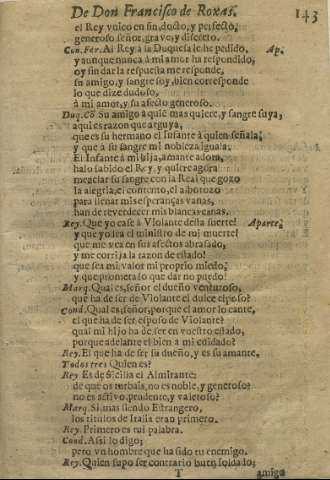 De Don Francisco de Roxas. 143
el Rey vnico en fin, docto, y perfecto,
generoso señor, graue, y discreto.
Con.Fer. Al Rey a la Duquesa le he pedido, Ap.
y aunque nunca à mi amor ha respondido,
oy sin dar la respuesta me responde,
su amigo, y sangre soy, bien corresponde
lo que dize dudoso,
à mi amor, y su afecto generoso.
Duq. Su amigo a quiē mas quiere, y sangre suya,
aqui es razon que arguya,
que es su hermano el Infante à quien señala,
y que à su sangre mi nobleza iguala.
El Infante à mi hija, amante adora,
halo sabido el Rey, y quiere agora
mezclar su sangre con la Real que gozo
la alegria, el contento, el alborozo
para llenar mis esperanças vanas,
han de reverdecer mis blancas canas.
Rey. Que yo case à Violante desta suerte! Aparte.
y que yo sea el ministro de mi muerte!
que me vea en sus afectos abrasado,
y me corrija la razon de estado!
que sea mi valor mi proprio miedo,
y que prometa lo que dar no puedo!
Marq. Qual es, señor el dueño venturoso,
que ha de ser de Violante el dulce esposo?
Cond. Qual es, señor, porque el amor lo cante,
el que ha de ser esposo de Violante?
qual mi hijo ha de ser en vuestro estado,
porque adelante el bien a mi cuidado?
Rey. El que ha de ser su dueño, y es su amante.
Todos tres Quien es?
Rey Es de Sicilia el Almirante:
de que os turbais, no es noble, y generoso?
no es activo, prudente, y valeroso?
Marq Si, mas siendo Estrangero,
los titulos de Italia eran primero.
Rey. Primero es mi palabra.
Cond. Assi lo digo;
pero vn hombre que ha sido tu enemigo.
Rey. Quien supo ser contrario buen soldado;
T amigo